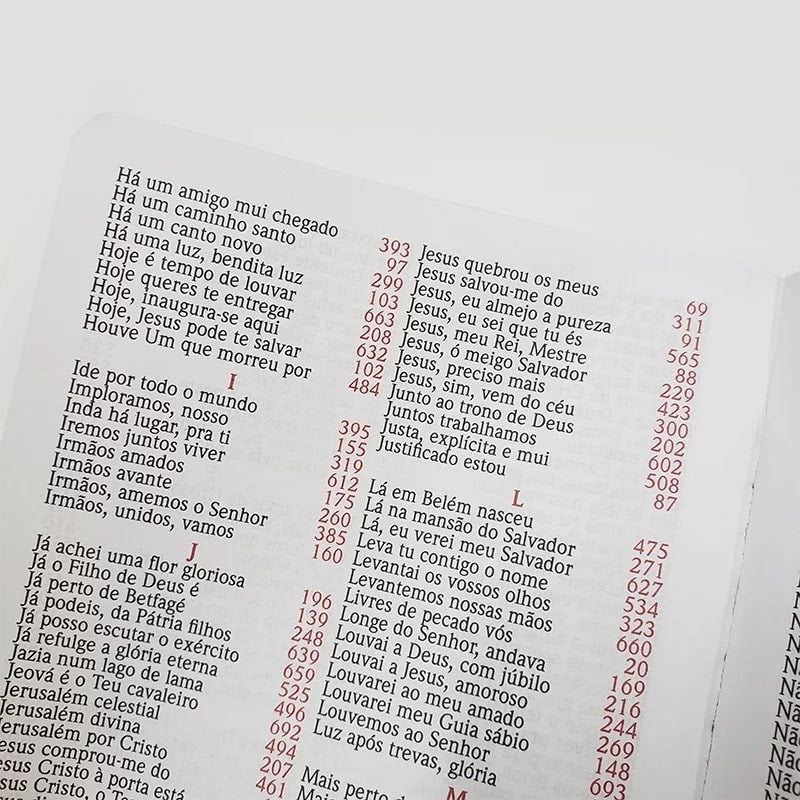 Há um amigo mui chegado 393
Há um caminho santo 97
Há um canto novo 299
Há uma luz, bendita luz 103
Hoje é tempo de louvar 663
Hoje queres te entregar 208
Hoje, inaugura-se aqui 632
Hoje, Jesus pode te salvar 102
Houve Um que morreu por 484
I
Ide por todo o mundo 395
Imploramos, nosso 155
Inda há lugar, pra ti 319
Iremos juntos viver 612
Irmãos amados 175
Irmãos avante 260
Irmãos, amemos o Senhor 385
Irmãos, unidos, vamos 160
J
Já achei uma flor gloriosa 196
Já o Filho de Deus é 139
Já perto de Betfagé 248
Já podeis, da Pátria filhos 639
Já posso escutar o exército 659
Já refulge a glória eterna 525
Jazia num lago de lama 496
Jeová é o Teu cavaleiro 692
Jerusalém celestial 494
Jerusalém divina 207
Jerusalém por Cristo 461
esus comprou-me do
esus Cristo à porta está
sus Cristo, o
Jesus quebrou os meus 69
Jesus salvou-me do 311
Jesus, eu almejo a pureza 91
Jesus, eu sei que tu és 565
Jesus, meu Rei, Mestre 88
Jesus, ó meigo Salvador 229
Jesus, preciso mais 423
Jesus, sim, vem do céu 300
Junto ao trono de Deus 202
Juntos trabalhamos 602
Justa, explícita e mui 508
Justificado estou 87
L
Lá em Belém nasceu 475
Lá na mansão do Salvador 271
Lá, eu verei meu Salvador 627
Leva tu contigo o nome 534
Levantai os vossos olhos 323
Levantemos nossas mãos 660
Livres de pecado vós 20
Longe do Senhor, andava 169
Louvai a Deus, com júbilo 216
Louvai a Jesus, amoroso 244
Louvarei ao meu amado 269
Louvarei meu Guia sábio 148
Louvemos ao Senhor 693
Luz após trevas, glória
M
Mais perto